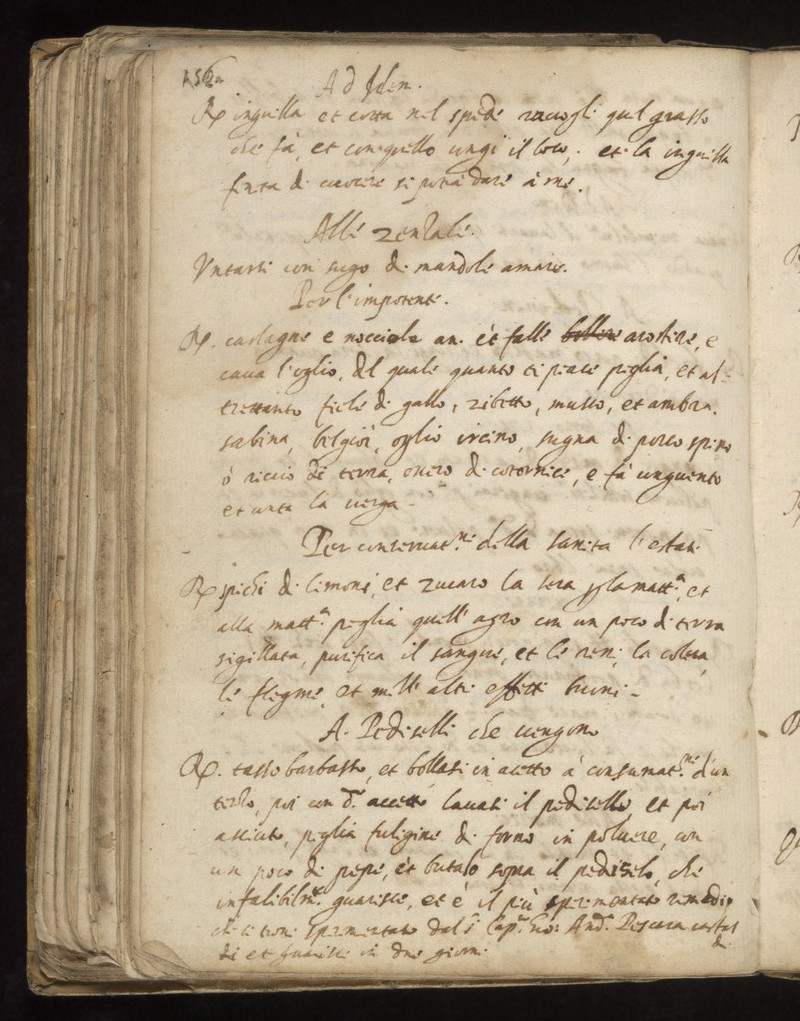 Ad Idem.
Rx inguilla et cotta nel spedo raccogli quel grasso
che fà, et con quello ungi il loco, et la inguilla
finta di cuocere si potrà dare à me.
Alle Zenzale.
Untarsi con sugo di mandole amare.
Per l'impotente.
Rx. castagne e nocciole an. et falle bollire arostire, e
cava l'oglio, del quale quanto ti piace piglia, et al-
trettanto fiele di gallo, zibetto, musco, et ambra,
sabina, belgioi, oglio ircino, sugna di porco spino
ò riccio di terra, overo di cotornice, e fà unguento
et unta la verga -
Per conservat.ne della sanita l'estate
Rx spichi di limoni, et zucaro la sera p la matt.a, et
alla matt.a peglia quell'agro con un poco di terra
sigillata, purifica il sangue, et le reni, la colera,
le flegme, et mille altri effetti buoni -
A. Pediselli che vengono
Rx. tasso barbasso, et bollasi in acetto à consumat.ne d'un
terzo, poi con d.o accetto lavasi il pedisello, et poi
asciuto, peglia fuligine di forno in polvere, con
un poco di pepe, et butalo sopra il pediselo, che
infalibilm.te guarisce, et è il più sperimentato remedio
che si trovi sperimentato dal s.r Cap.n Gio: And.a Pescara
di et guarisce in due giorni